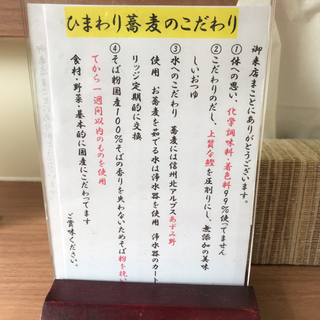 ひまわり蕎麦のこだわり
御来店まことにありがとうございます。
①体への思い、化学調味料・着色料99%使ってません
②こだわりのだし、上質な鰹を圧削りにし、無添加の美味
しいおつゆ
③水へのこだわり 蕎麦には信州北アルプスあずみ野
使用 お蕎麦を茹でる水は浄水器を使用 浄水器のカート
リッジ定期的に交換
④そば粉国産100%そばの香りを失わないためそば粉を挽い
てから一週間以内のものを使用
食材・野菜・基本的に国産にこだわってます
ご賞味ください。